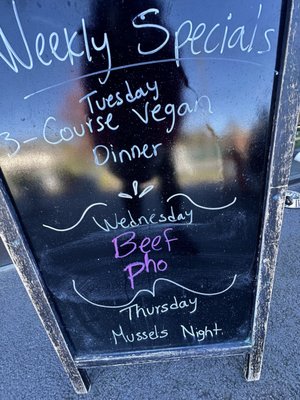 Weekly Specials
Tuesday
3-Course Vegan
Dinner
Wednesday
Beef
Pho
Thursday
Mussels Night